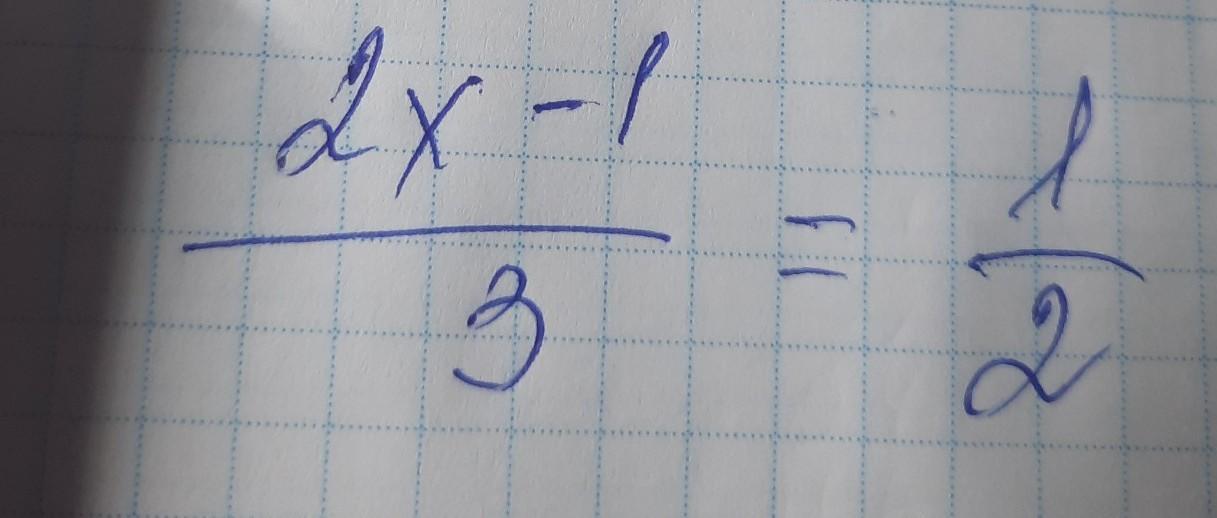 (2x - 1)/3 = 1/2